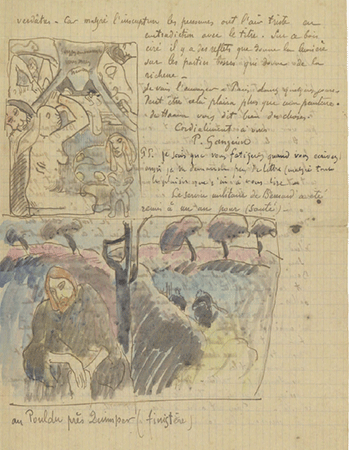 Car malgré l'inscription les personnes ont l'air triste en
contradiction avec le titre. Sur ce bois
ciré il y a des reflets que donne la lumière
sur les parties bosses qui donne de la
richesse —
Je vais l'envoyer à Paris
peut être cela plaira plus que ma peinture.
de Haan vous dit bien des choses.
Cordialement à vous
P. Gauguin
P.S. je sais que vous fatiguez quand vous écrivez
aussi je ne demanderai pas de lettre (malgré tout
le plaisir que j'ai à vous lire)
Le service militaire de Bernard a été
remis à un an pour (santé)
au Pouldu près Quimper (finistère)